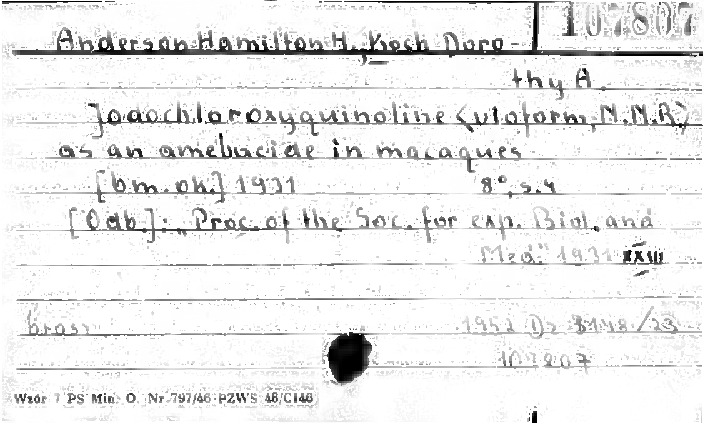 107807
Anderson Hamilton H., Koch Doro-
thy A.
Jodochloroxyquinoline (vioform, N.N.R)
as an amebacide in macaques
[bm. ok.] 1931 8°, s. 4
[Odb.]: „Proc. of the Soc. for exp. Biol. and
Med." 1931 XXVIII
brosz 1952 Dz
107807
Wzór 7 PS Min. O. Nr 797/46 PZWS 46/C146